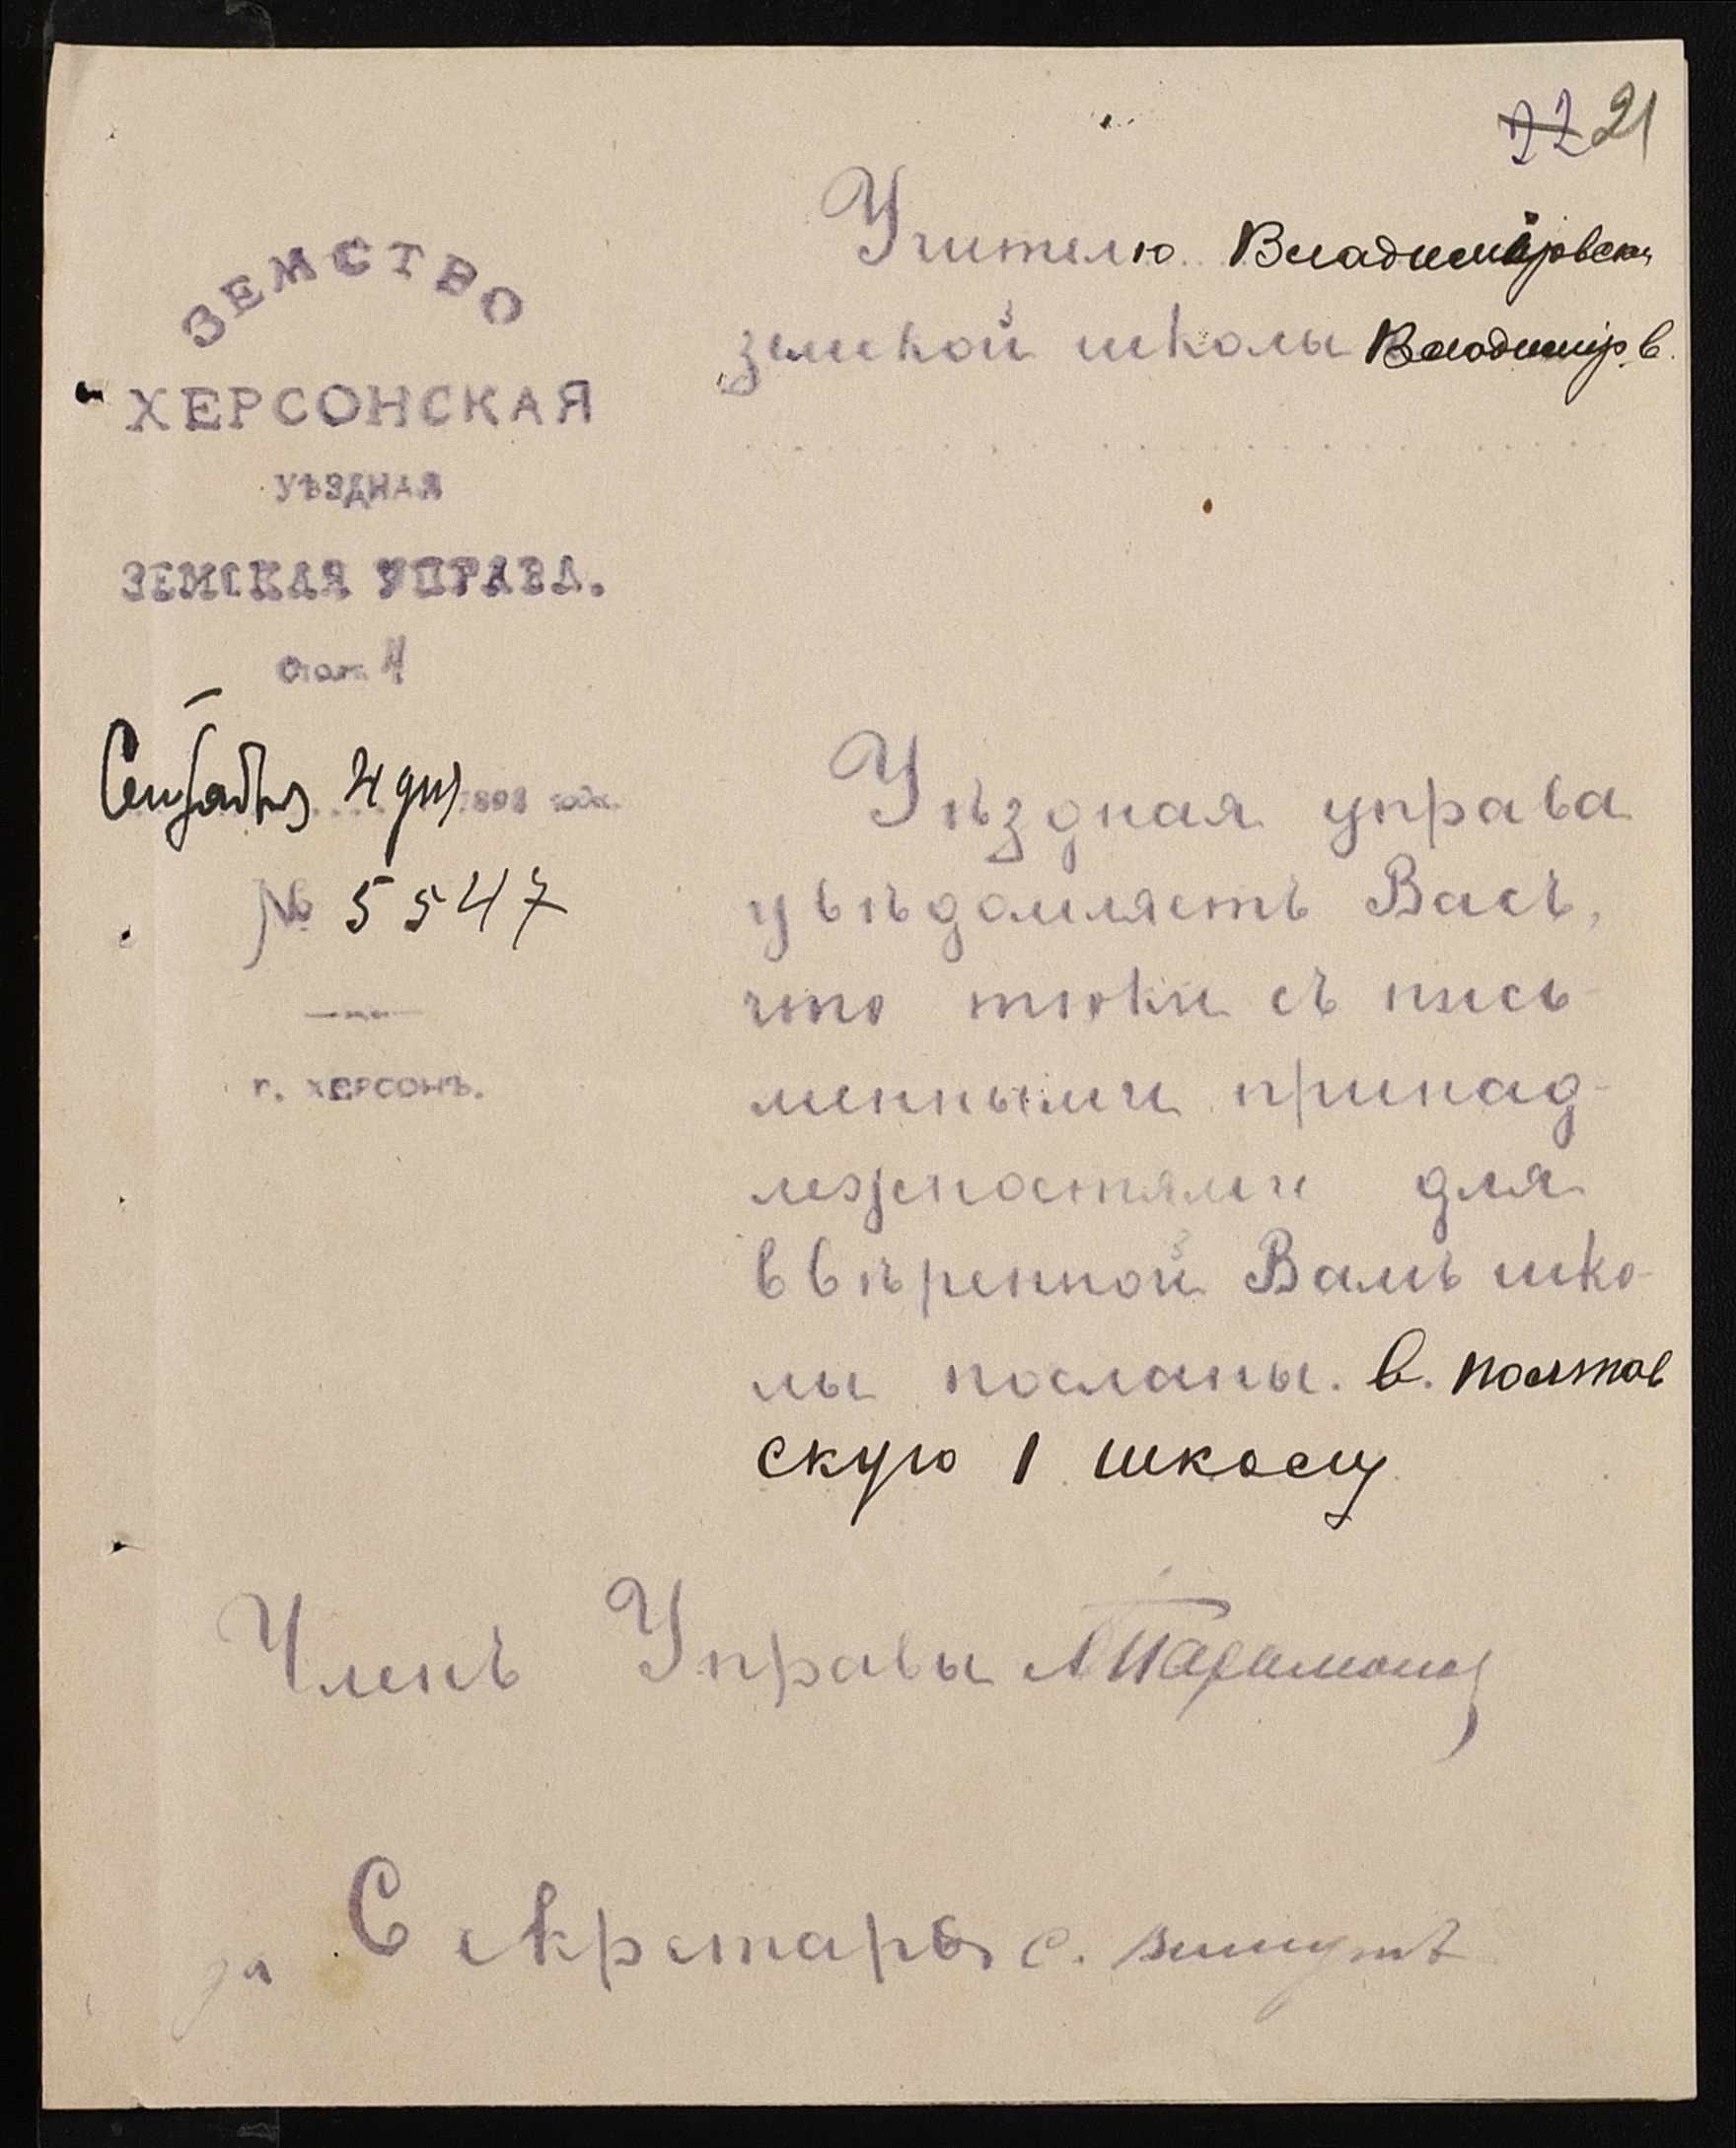 22 21
ЗЕМСТВО
ХЕРСОНСКАЯ
УѢЗДНАЯ
ЗЕМСКАЯ УПРАВА.
Сентября 4 дня 1898 года.
№ 5547
г. ХЕРСОНЪ.
Учителю Владиміровской
земской школы Владимір. в.
Уѣздная управа
увѣдомляетъ Васъ,
что тюки съ пись-
менными принад-
лежностями для
ввѣренной Вамъ шко-
лы посланы. в. полтав
скую 1 школу
Членъ Управы
за Секретаря